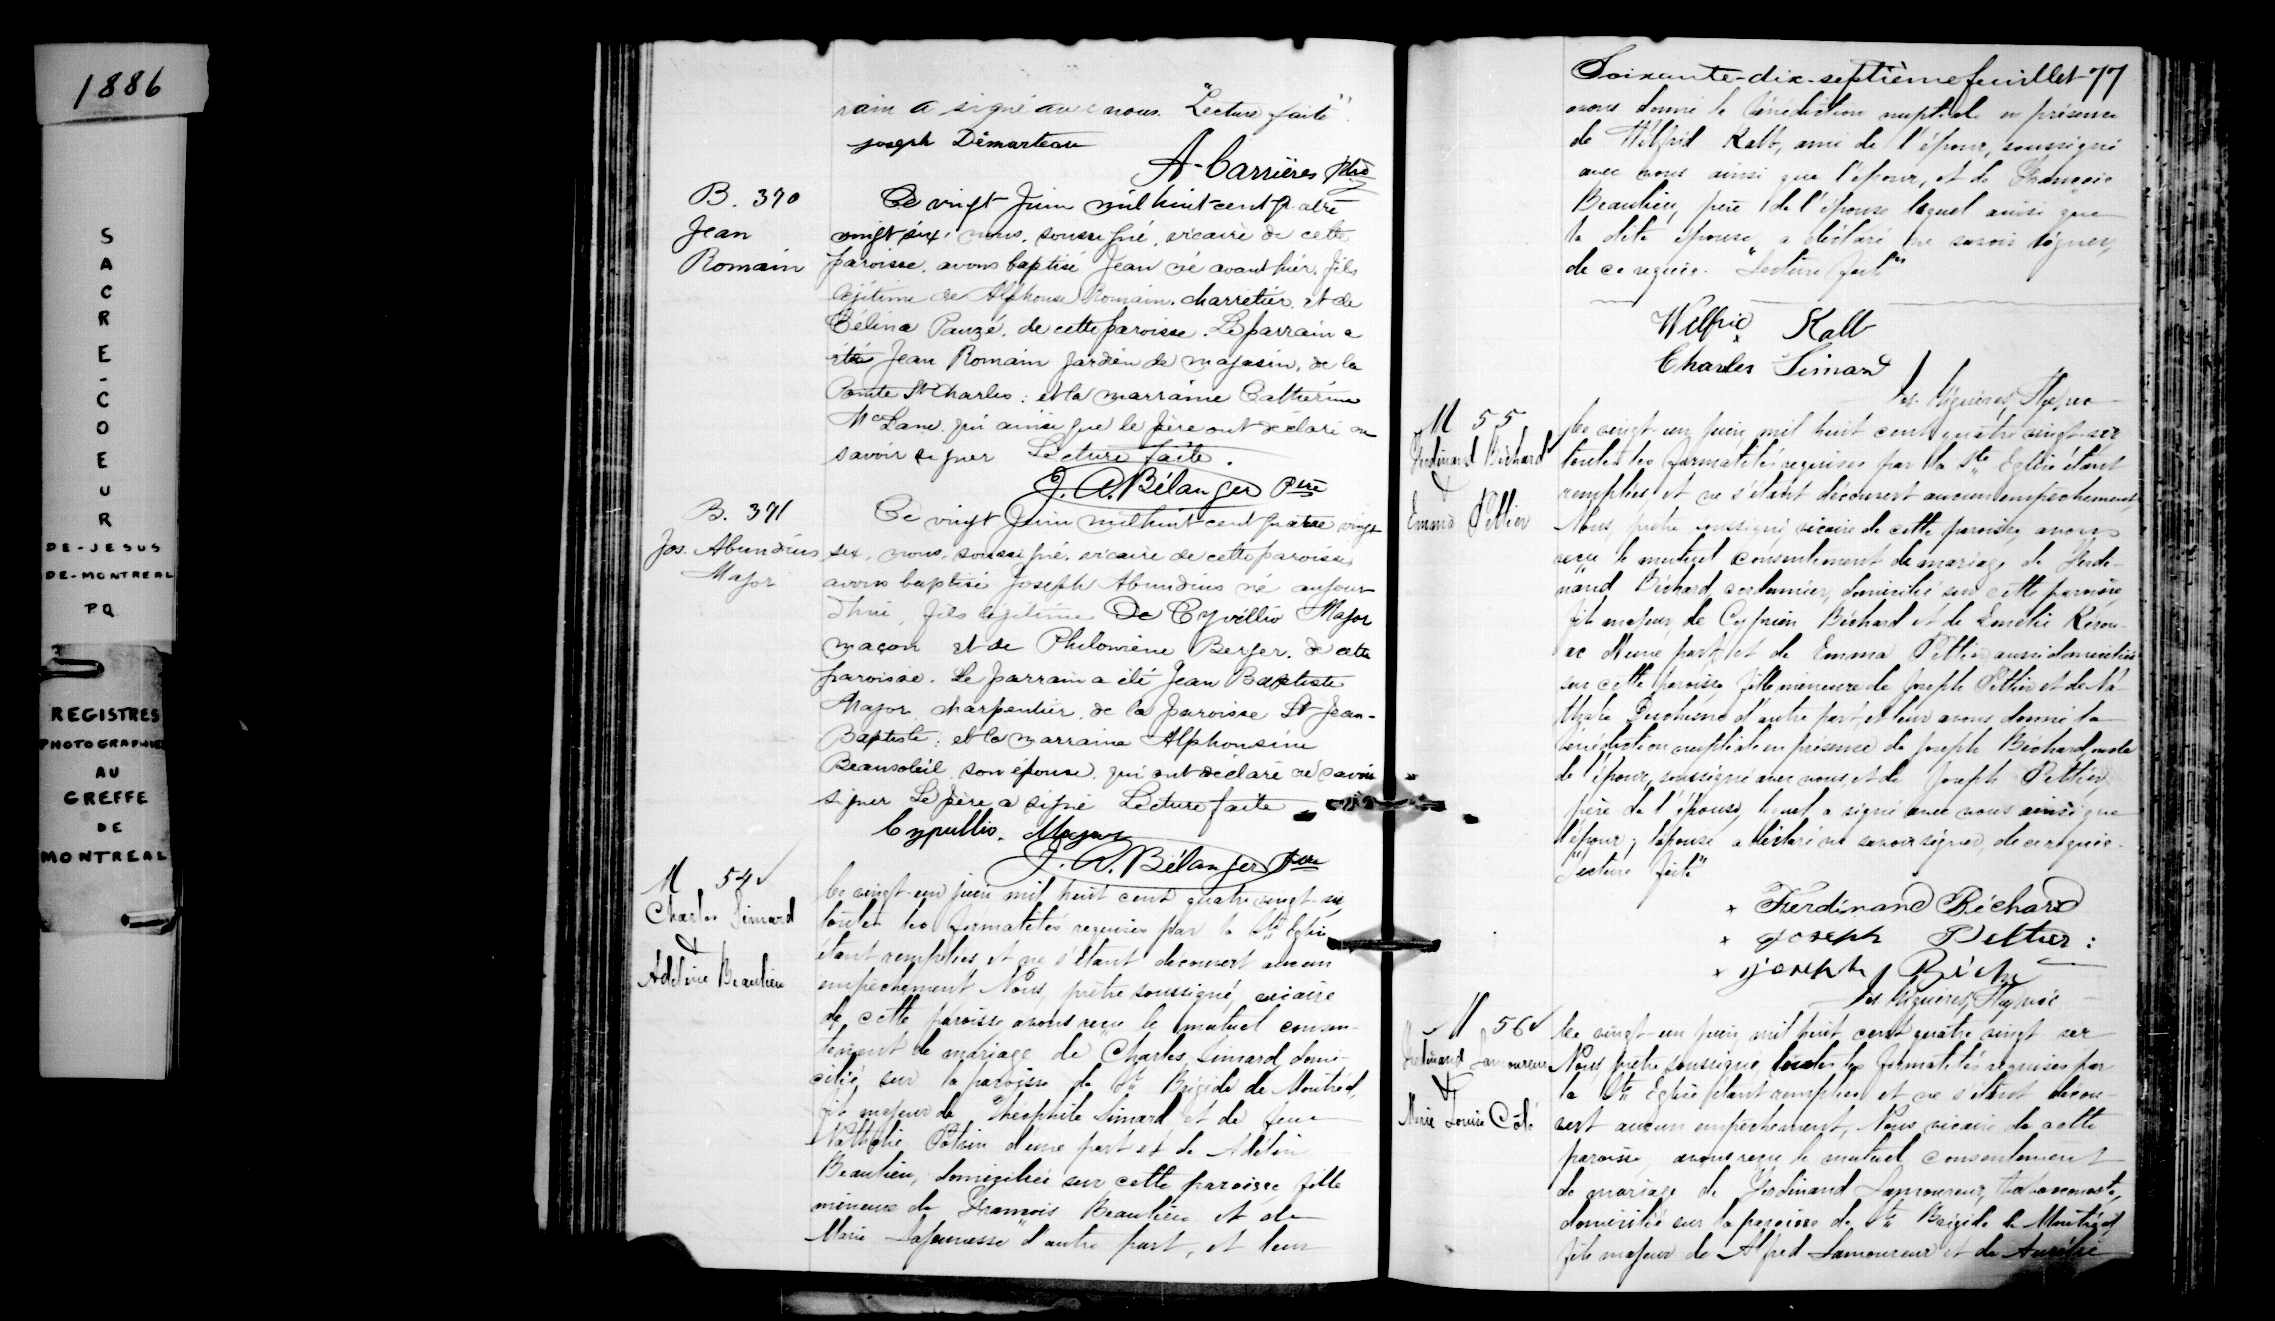 1886
SACRE-COEUR
DE-JESUS
DE-MONTREAL
PQ
REGISTRES
PHOTOGRAPHIES
AU
GREFFE
DE
MONTREAL
rain a signé avec nous. "Lecture faite".
Joseph Démarteau
A. Carrières Ptre
B. 370
Jean
Romain
Ce vingt Juin mil huit cent quatre
vingt six, nous, soussigné, vicaire de cette
paroisse, avons baptisé Jean né avant hier, fils
légitime de Alphonse Romain, charretier, et de
Célina Pauzé, de cette paroisse. Le parrain a
été Jean Romain gardien de magasin, de la
Pointe St Charles: et la marraine Catherine
McLane qui ainsi que le père ont déclaré ne
savoir signer Lecture faite.
J. A. Bélanger Ptre
B. 371
Jos. Abundius
Major
Ce vingt Juin mil huit cent quatre vingt
six, nous, soussigné, vicaire de cette paroisse
avons baptisé Joseph Abundius né aujour-
d'hui, fils légitime De Cyrillio Major
maçon et de Philomène Berger, de cette
paroisse. Le parrain a été Jean Baptiste
Major charpentier, de la paroisse St-Jean-
Baptiste: et la marraine Alphonsine
Beausoleil son épouse, qui ont déclaré ne savoir
signer Le père a signé Lecture faite
Major
J. A. Bélanger Ptre
M 54
Charles Simard
&
Adeline Beaulieu
Le vingt-un juin mil huit cent quatre vingt six,
toutes les formalités requises par la Ste Eglise
étant remplies et ne s'étant découvert aucun
empêchement Nous, prêtre soussigné, vicaire
de cette paroisse avons reçu le mutuel consen-
tement de mariage de Charles Simard, domi-
cilié sur la paroisse de Ste Brigide de Montréal,
fils majeur de Théophile Simard, et de feue
Nathalie Potvin d'une part et de Adeline
Beaulieu, domiciliée sur cette paroisse, fille
mineure de François Beaulieu et de
Marie Lajeunesse d'autre part, et leur
Soixante-dix-septième feuillet-77
avons donné la bénédiction nuptiale en présence
de Wilfrid Kalb, ami de l'époux, soussigné
avec nous ainsi que l'époux, et de François
Beaulieu, père de l'épouse lequel ainsi que
la dite épouse a déclaré ne savoir signer,
de ce requis. "Lecture faite"
Wilfrid Kalb
Charles Simard
M 55
Ferdinand Béchard
&
Emma Peltier
Le vingt-un juin mil huit cent quatre vingt-six
toutes les formalités requises par la Ste Eglise étant
remplies et ne s'étant découvert aucun empêchement,
Nous, prêtre soussigné, vicaire de cette paroisse, avons
reçu le mutuel consentement de mariage de Ferdi-
nand Béchard, cordonnier, domicilié sur cette paroisse,
fils majeur de Cyprien Béchard et de Kérou-
ac d'une part, et de Emma Peltier aussi domiciliée
sur cette paroisse, fille mineure de Joseph Peltier et de
Duchesne d'autre part, et leur avons donné la
bénédiction nuptiale en présence de Joseph Béchard, oncle
de l'époux, soussigné avec nous, et de Joseph Peltier,
père de l'épouse, lequel a signé avec nous ainsi que
l'époux; l'épouse a déclaré ne savoir signer, de ce requis.
"Lecture faite"
x Ferdinand Béchard
x Joseph Peltier:
x joseph
M 56
Ferdinand Lamoureux
&
Marie Louise Côté
Le vingt-un juin mil huit cent quatre vingt six
Nous, prêtre soussigné, toutes les formalités requises par
la Ste Eglise étant remplies et ne s'étant décou-
vert aucun empêchement, Nous vicaire de cette
paroisse, avons reçu le mutuel consentement
de mariage de Ferdinand Lamoureux,
domicilié sur la paroisse de Ste Brigide de Montréal,
fils majeur de Alfred Lamoureux et de Aurélie